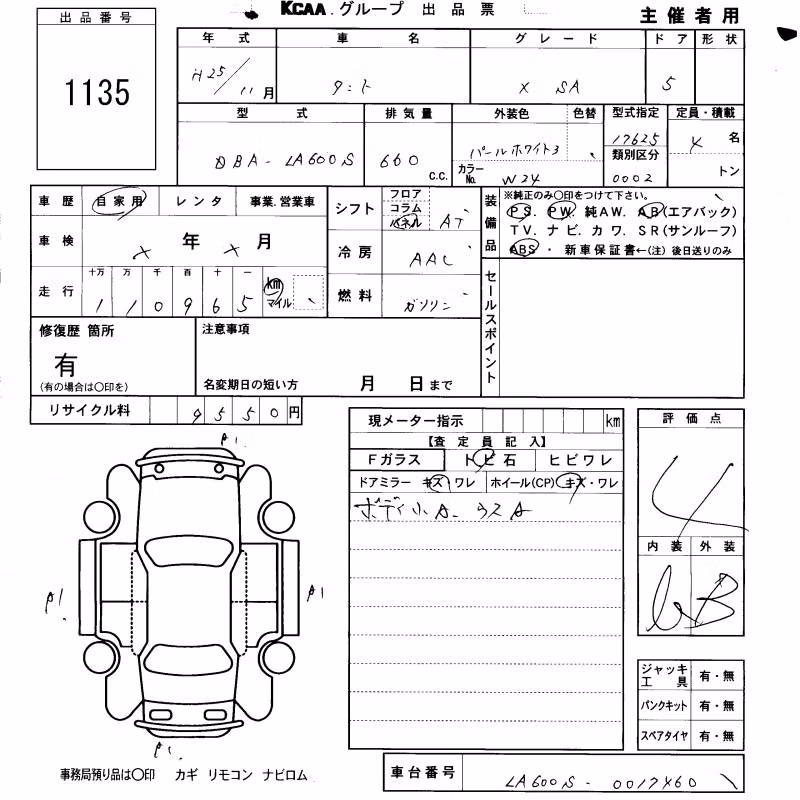 KCAA.グループ 出品票
主催者用
出品番号
1135
年式 車名 グレード ドア 形状
H25/11月 タント X SA 5
型式 排気量 外装色 色替 型式指定 定員・積載
DBA-LA600S 660 c.c. パールホワイト3 17625 4名
類別区分
カラーNo. W24 0002 トン
車歴 自家用 レンタ 事業.営業車
シフト フロア コラム パネル AT
車検 x年 x月
冷房 AAC
走行 十万 万 千 百 十 一
110965 km マイル
燃料 ガソリン
装備品 ※純正のみ○印をつけて下さい。
PS. PW. 純AW. AB(エアバック)
TV. ナビ. カワ. SR(サンルーフ)
ABS・新車保証書←(注)後日送りのみ
セールスポイント
修復歴 箇所
有
(有の場合は○印を)
注意事項
名変期日の短い方 月 日まで
リサイクル料 9550円
現メーター指示 km
【査定員記入】
Fガラス トビ石 ヒビワレ
ドアミラー キズ・ワレ ホイール(CP) キズ・ワレ
ボディ小A. ウスA
評価点
4
内装 外装
B
A1
A1
A1
A1
ジャッキ工具 有・無
パンクキット 有・無
スペアタイヤ 有・無
事務局預り品は○印 カギ リモコン ナビロム
車台番号 LA600S-0017460